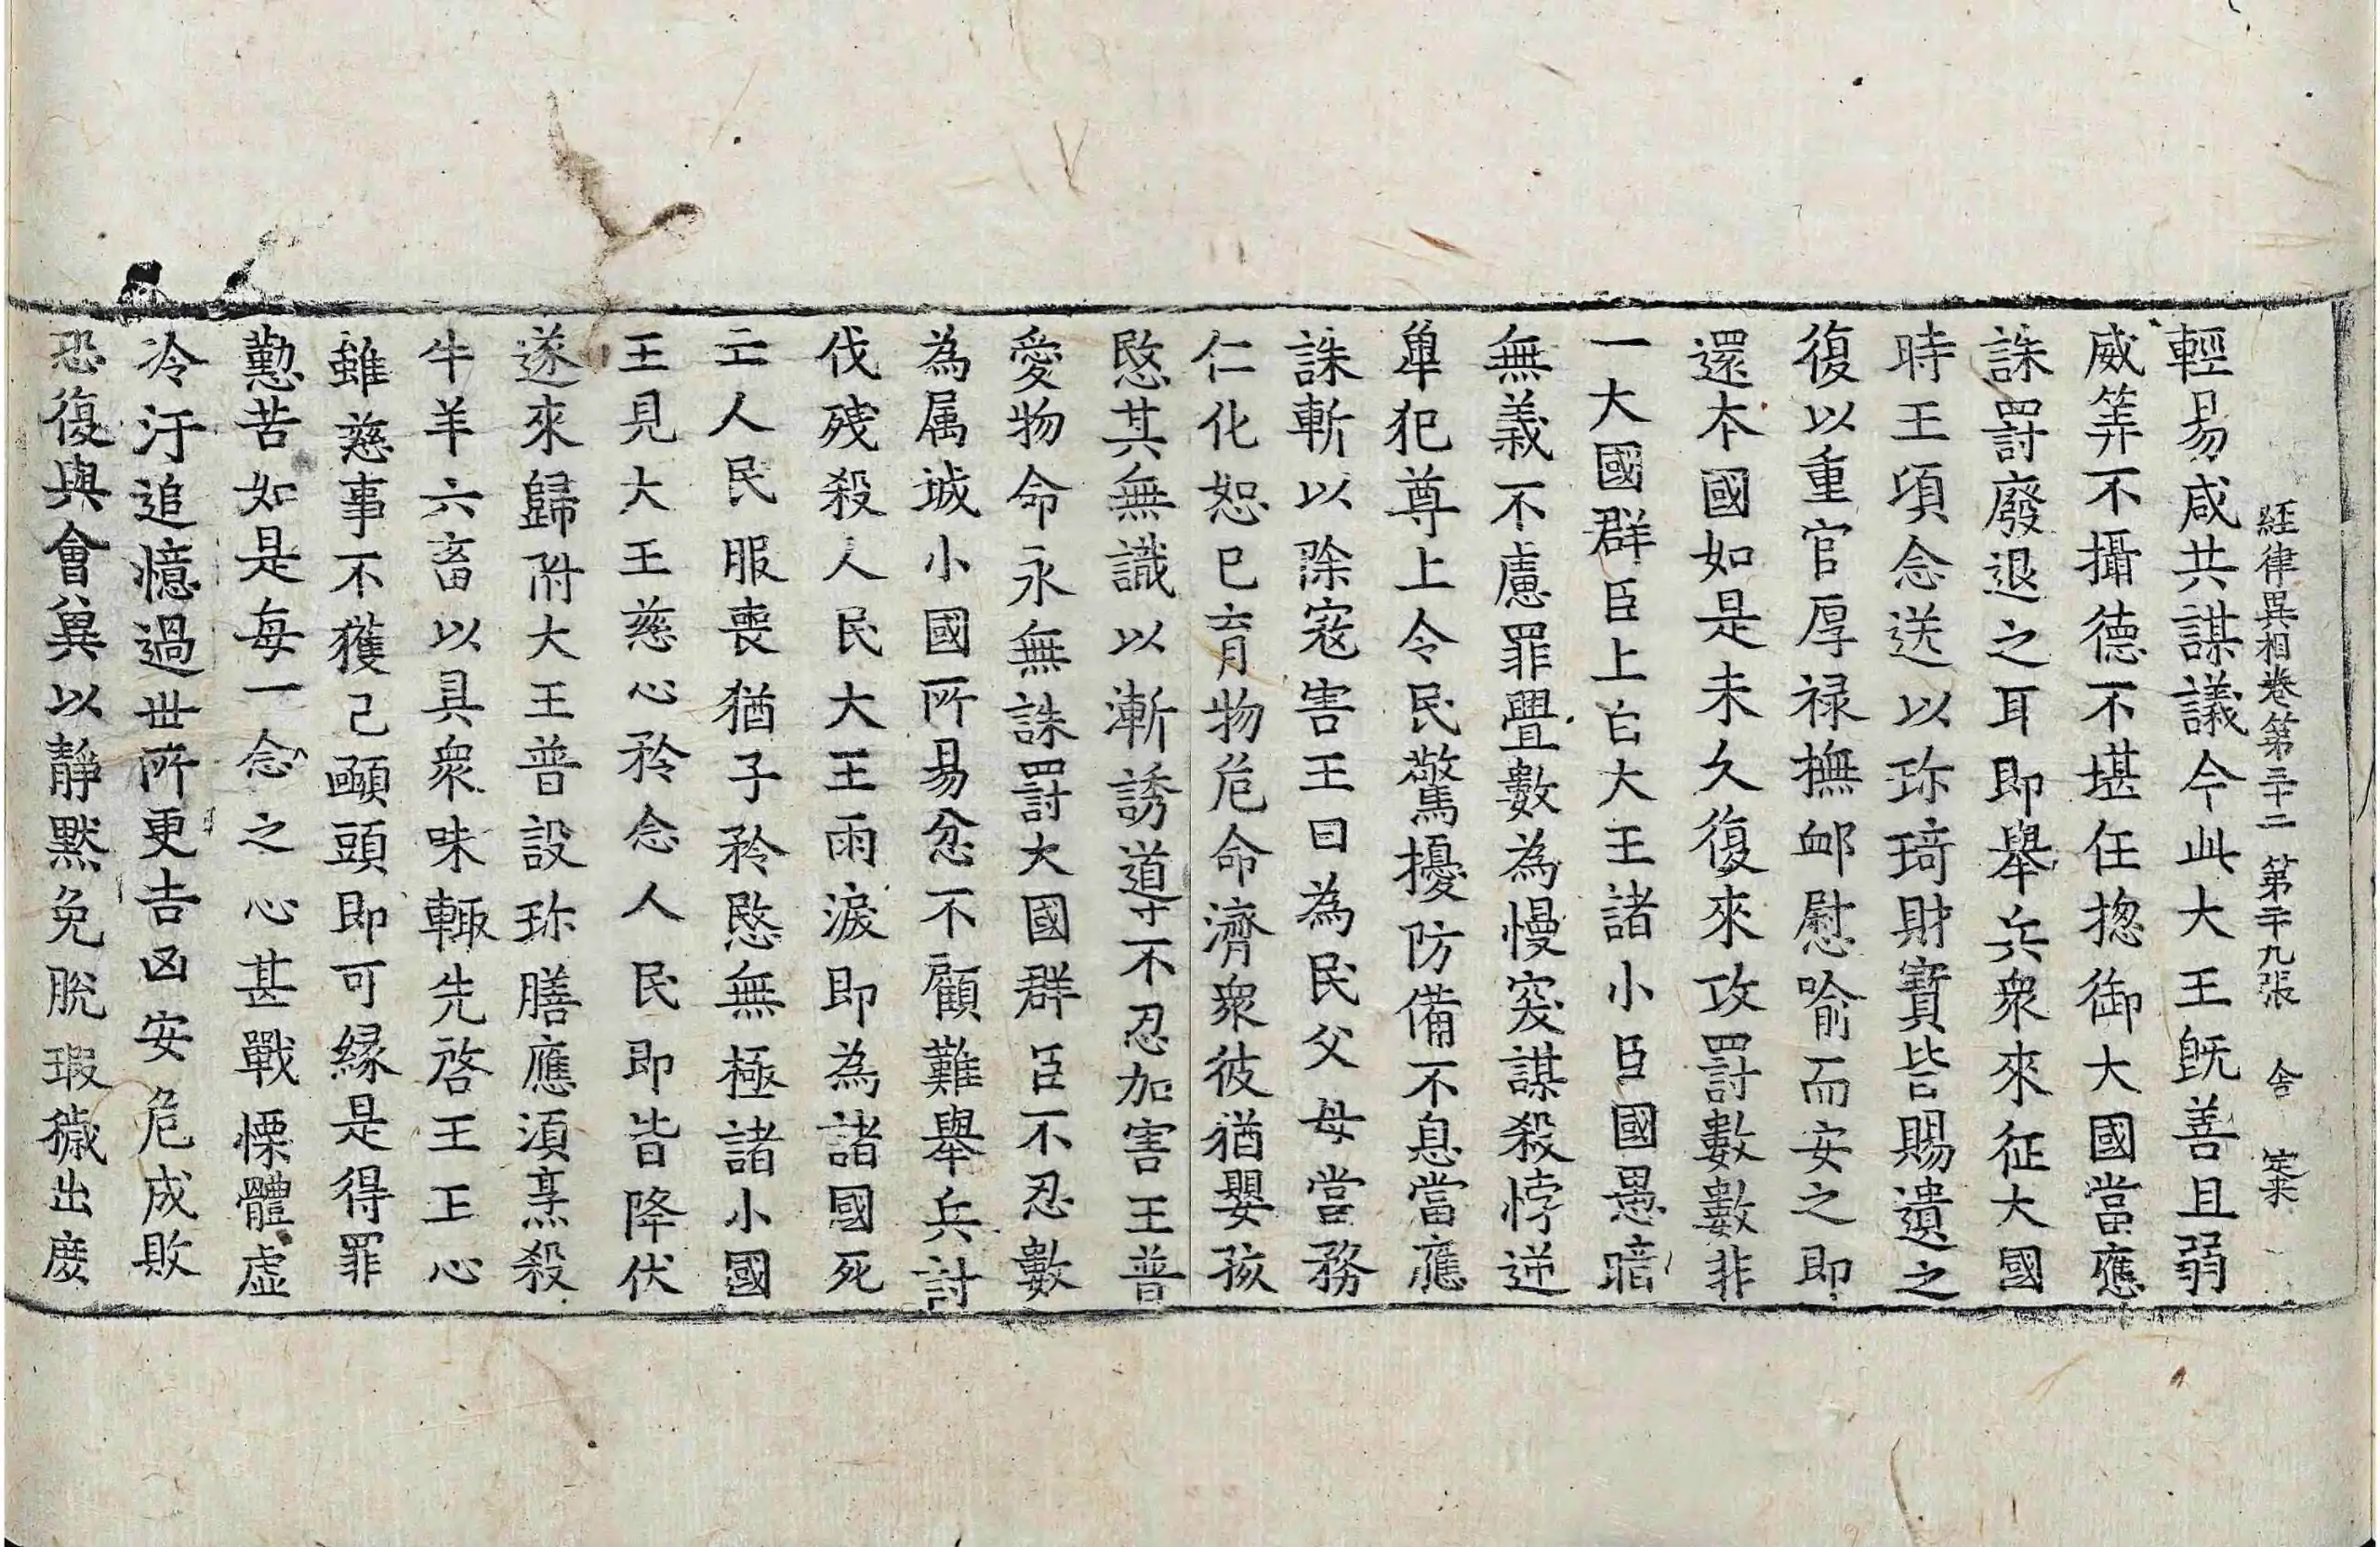 經律異相卷第三十二 第二十九張 舍
輕易咸共謀議今此大王旣善且弱
威筭不攝德不堪任揔御大國當應
誅罰廢退之耳即舉兵衆來征大國
時王頃念送以珎琦財寳皆賜遺之
復以重官厚禄撫䘏慰喻而安之即
還本國如是未久復來攻罰數數非
一大國群臣上白大王諸小臣國愚暗
無義不慮罪舋數為慢突謀殺悖逆
卑犯尊上令民驚擾防備不息當應
誅斬以除寇害王曰為民父母當務
仁化恕已育物危命濟衆彼猶嬰孩
愍其無識以漸誘導不忍加害王普
愛物命永無誅罰大國群臣不忍數
為属城小國所易忿不顧難舉兵討
伐殘殺人民大王雨淚即為諸國死
亡人民服喪猶子矜愍無極諸小國
王見大王慈心矜念人民即皆降伏
遂來歸附大王普設珎膳應湏烹殺
牛羊六畜以具衆味輙先啓王王心
雖慈事不獲己頤頭即可緣是得罪
懃苦如是每一念之心甚戰慄體虛
冷汙追憶過世所更吉凶安危成敗
恐復與會兾以靜黙免脫瑕穢出度